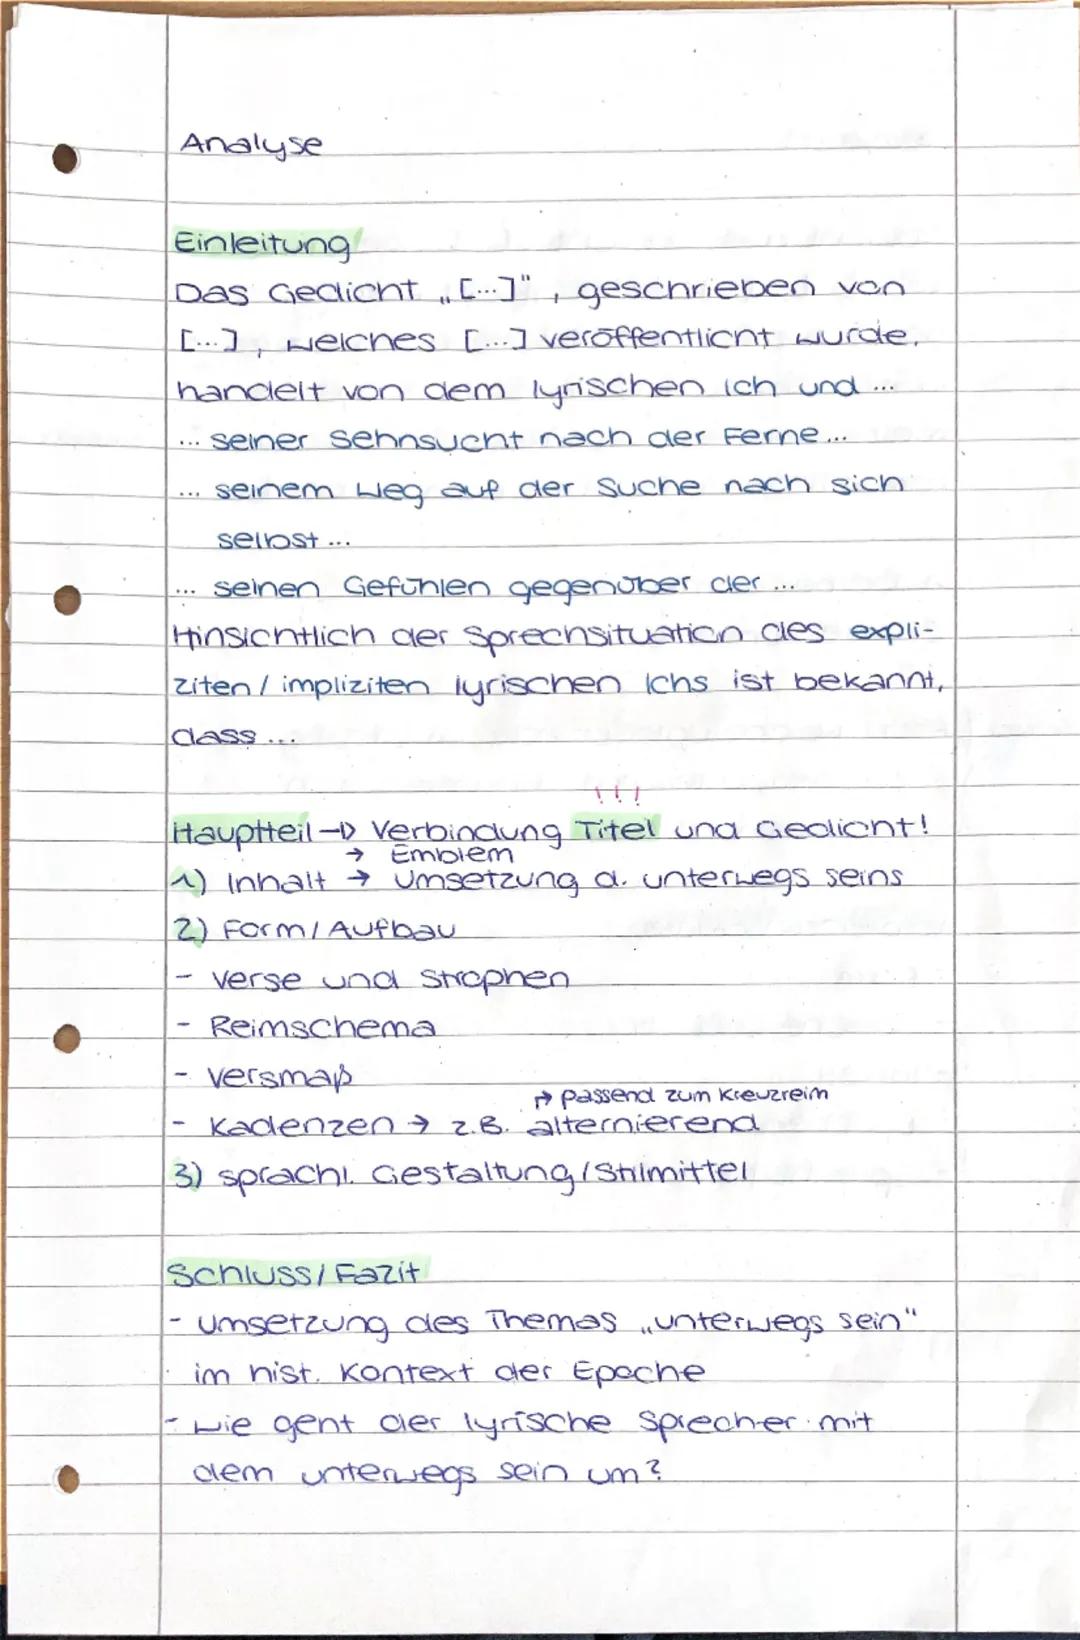 Analyse
Einleitung
Das Gedicht „[...]", geschrieben von
[...], welches [...] veröffentlicht wurde,
handelt von dem lyrischen Ich und ...
... seiner Sehnsucht nach der Ferne ...
... seinem Weg auf der Suche nach sich
selbst ...
... seinen Gefühlen gegenüber der ...
Hinsichtlich der Sprechsituation des expli-
ziten / impliziten lyrischen Ichs ist bekannt,
dass ...
!!!
Hauptteil → Verbindung Titel und Gedicht!
→ Emblem
1) Inhalt → Umsetzung d. unterwegs seins
2) Form / Aufbau
- Verse und Strophen
- Reimschema
- Versmaß
→ passend zum Kreuzreim
- Kadenzen → z.B. alternierend
3) sprachl. Gestaltung / Stilmittel
Schluss / Fazit
- Umsetzung des Themas „unterwegs sein"
im hist. Kontext der Epoche
- Wie geht der lyrische Sprecher mit
dem unterwegs sein um?